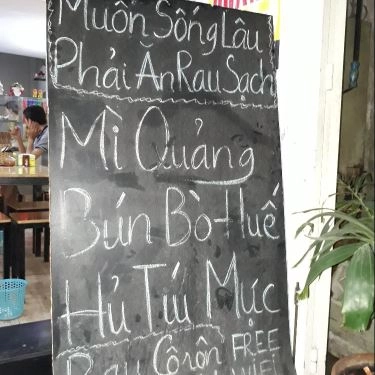 Muốn Sống Lâu
Phải Ăn Rau Sạch
Mì Quảng
Bún Bò Huế
Hủ Tíu Mực
Rau Côrôn FREE
WIFI